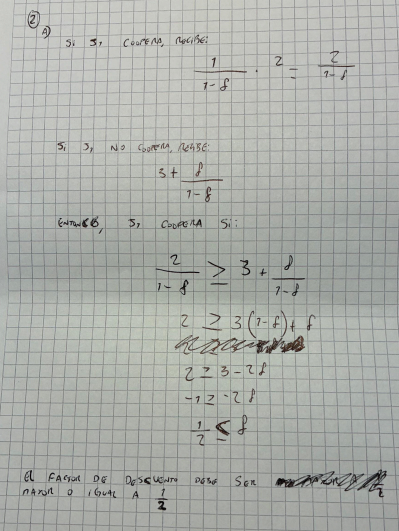 ②
A)
Si J₁ COOPERA, RECIBE:
1/(1-δ) · 2 = 2/(1-δ)
Si J₁ NO COOPERA, RECIBE:
3 + δ/(1-δ)
ENTONCES, J₁ COOPERA Si:
2/(1-δ) ≥ 3 + δ/(1-δ)
2 ≥ 3(1-δ) + δ
2 ≥ 3 - 2δ
-1 ≥ -2δ
1/2 ≤ δ
EL FACTOR DE DESCUENTO DEBE SER
MAYOR O IGUAL A 1/2